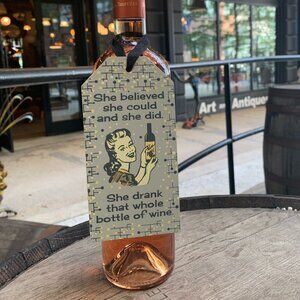 She believed
she could
and she did.
She drank
that whole
bottle of wine.
Art
Antiques